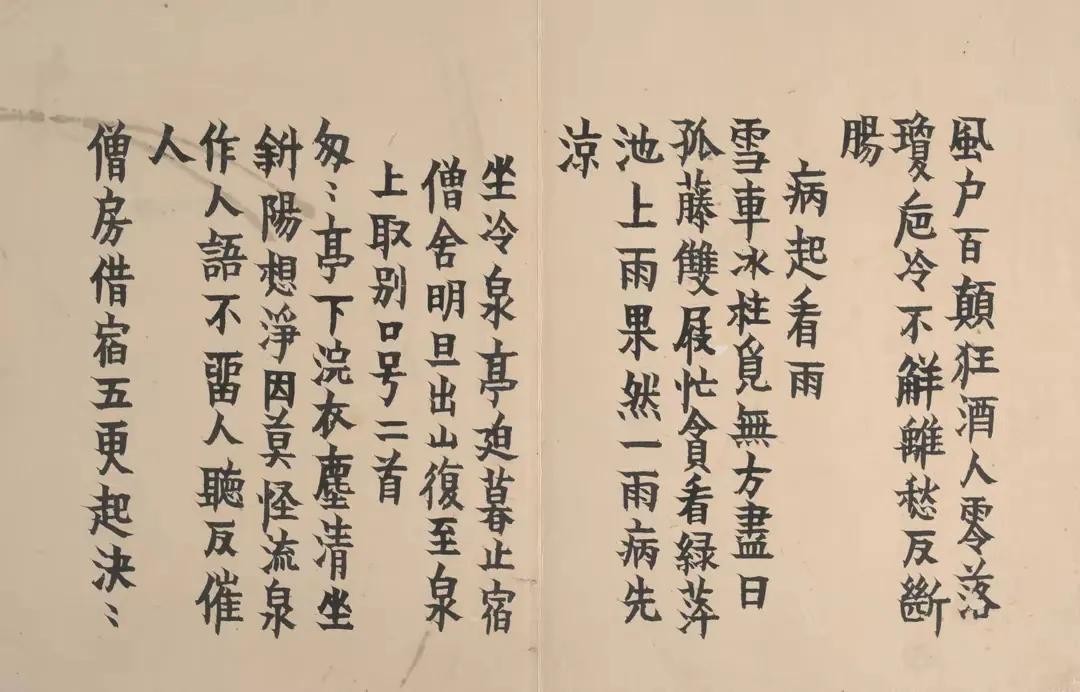 風户百顛狂酒人零落
瓊卮冷不解離愁反斷
腸
病起看雨
雪車冰柱覓無方盡日
孤藤雙屐忙貪看緑萍
池上雨果然一雨病先
涼
坐冷泉亭廹暮止宿
僧舍明旦出山復至泉
上取别口号二首
匆〻亭下浣衣塵清坐
斜陽想淨因莫怪流泉
作人語不畱人聽反催
人
僧房借宿五更起決〻